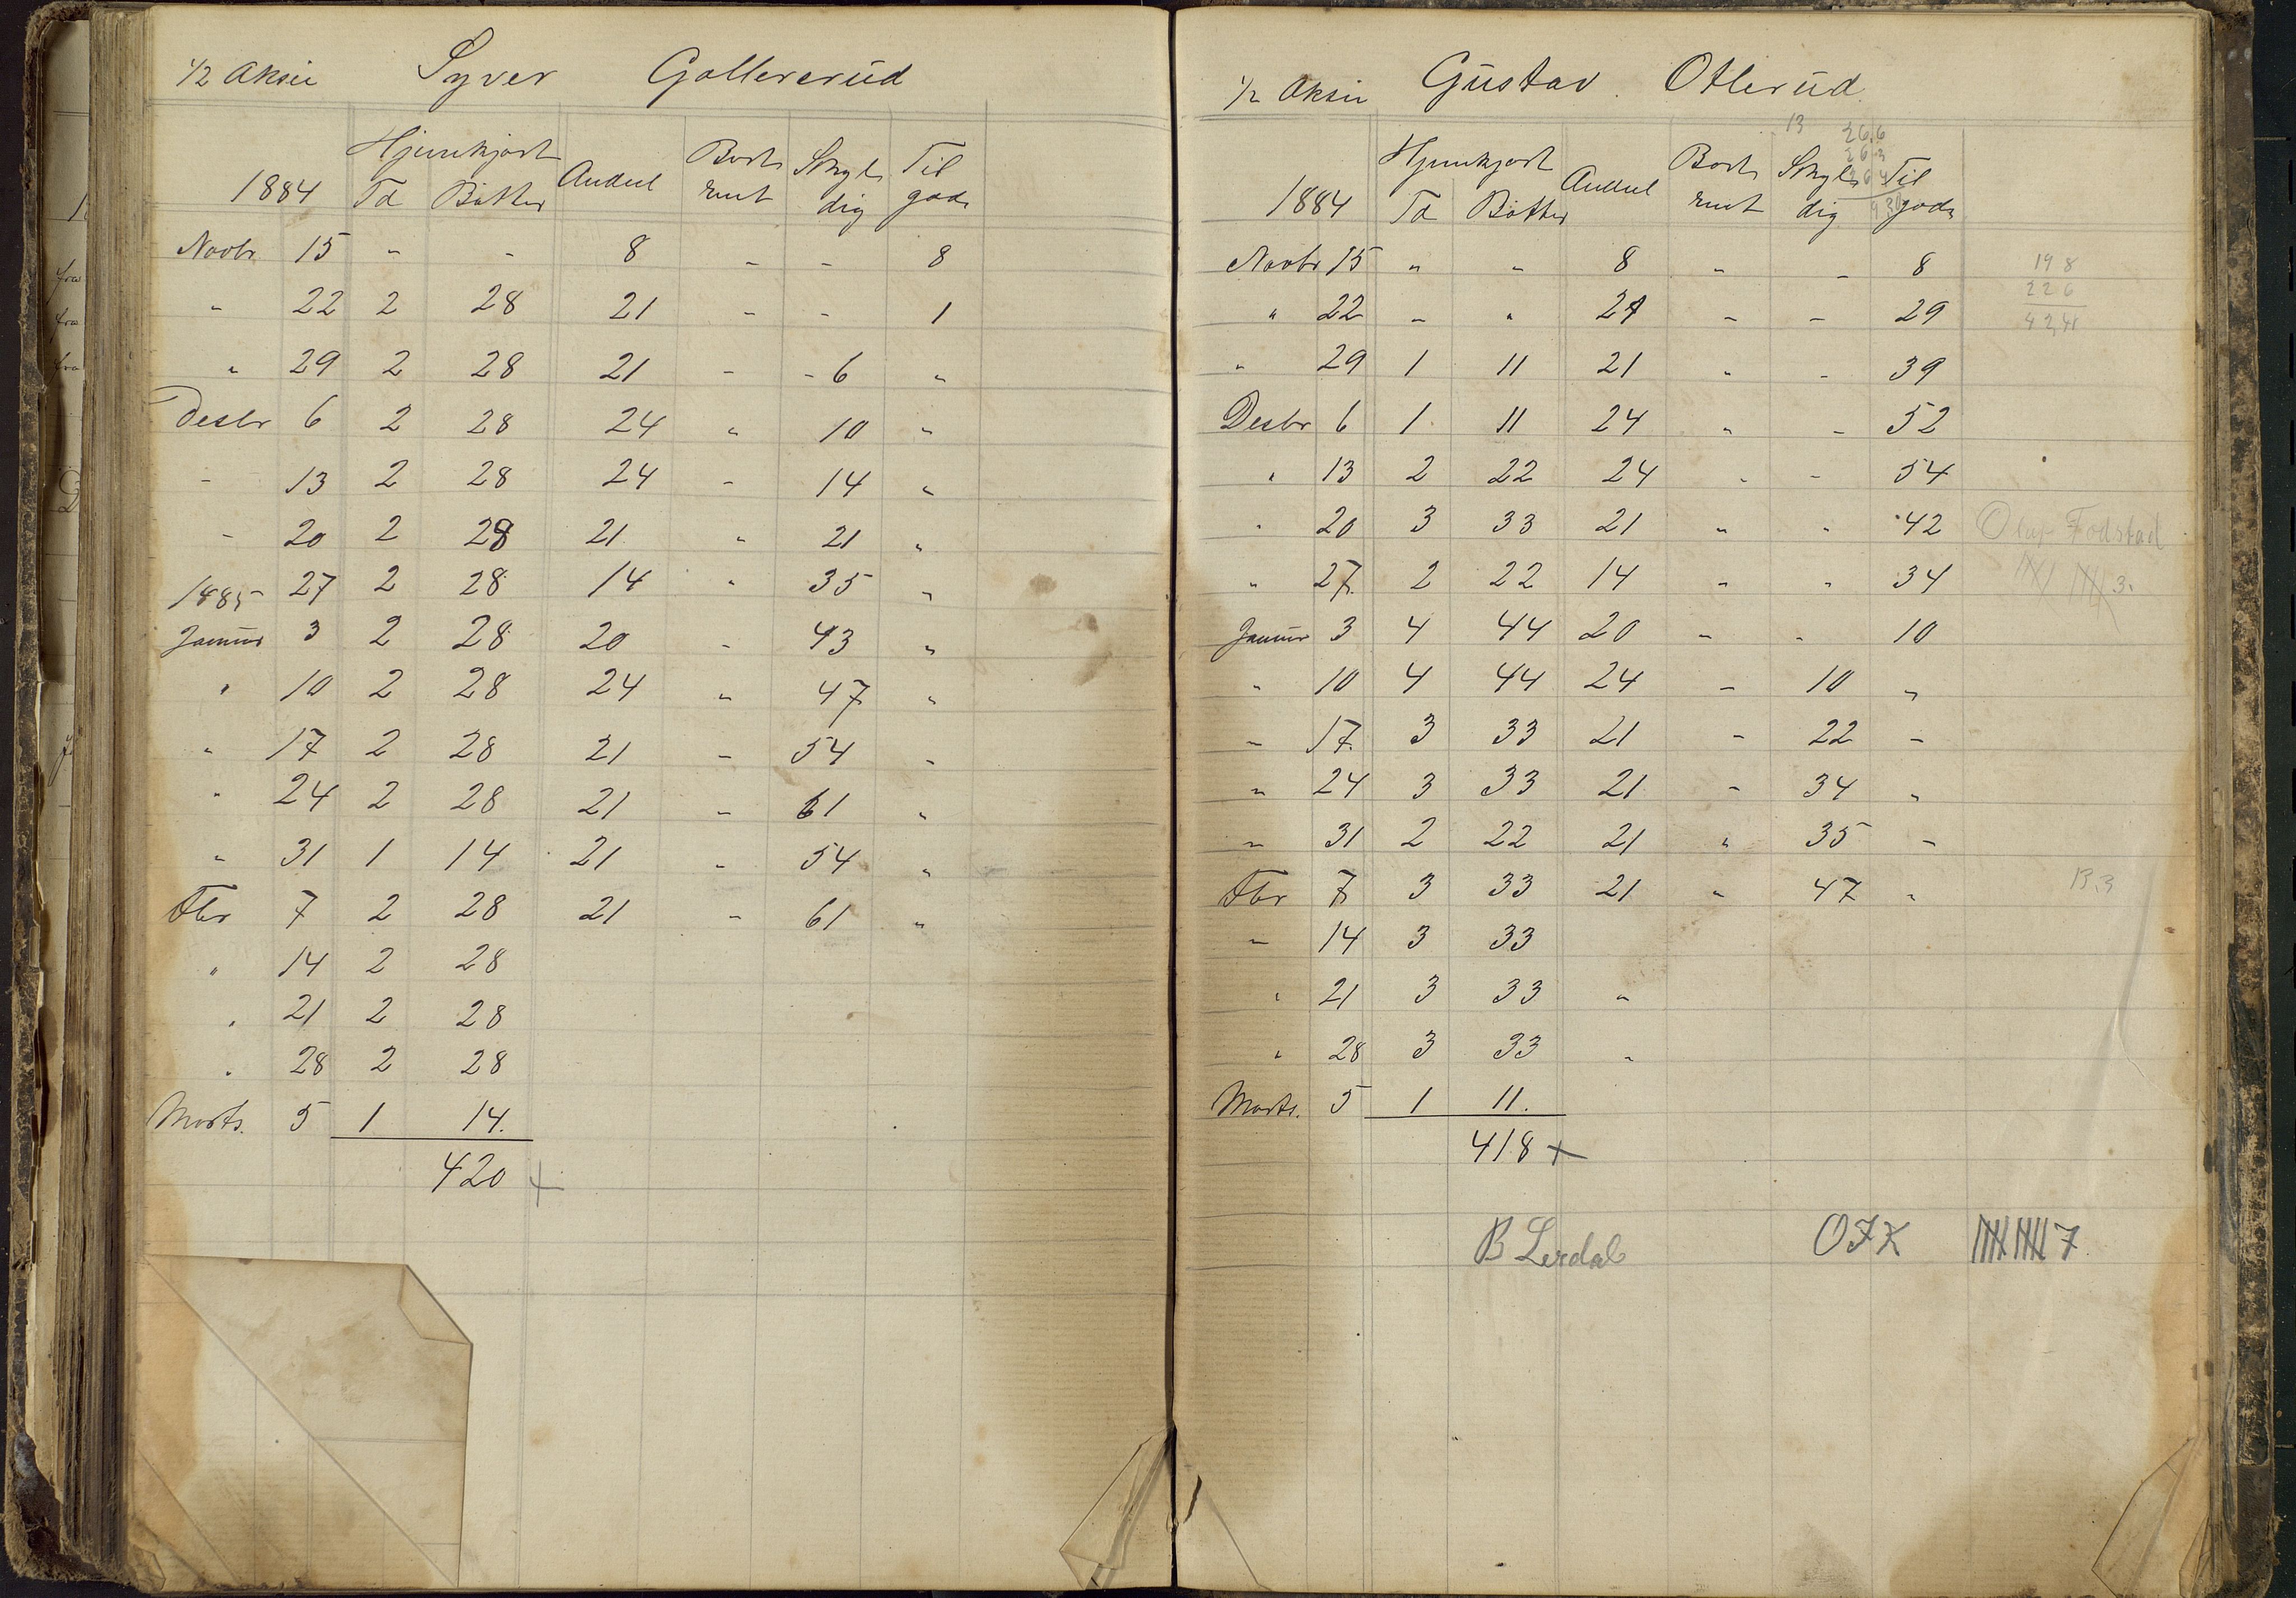 1/2 Aksie Syver Gollererud
Hjemkjørt Andeel Bort Skyl Til
1884 Td Bøtter rent dig gode
Novbr 15 - - 8 - - 8
" 22 2 28 21 - - 1
" 29 2 28 21 - - 6 "
Desbr 6 2 28 24 " 10 "
- 13 2 28 24 - 14 "
- 20 2 28 21 " 21 "
1885 27 2 28 14 " 35 "
Januar 3 2 28 20 - 43 "
" 10 2 28 24 " 47 "
" 17 2 28 21 - 54 -
" 24 2 28 21 - 61 "
" 31 1 14 21 - 54 "
Fbr 7 2 28 21 - 61 "
" 14 2 28
" 21 2 28
" 28 2 28
Marts. 5 1 14.
420 +
1/2 Aksie Gustav Otlerud
13 266
263
Hjemkjørt Andeel Bort Skyl Til
1884 Td Bøtter rent dig gode
Novbr 15 " " 8 " - 8 198
" 22 - " 21 - - 29 226
" 29 1 11 21 " - 39
Desbr 6 1 11 24 " - 52
" 13 2 22 24 - - 54
" 20 3 33 21 " " 42 Olaf Fodstad
" 27 2 22 14 " " 34 3.
Januar 3 4 44 20 - - 10
" 10 4 44 24 - 10 "
- 17 3 33 21 - 22 -
" 24 3 33 21 - 34 "
" 31 2 22 21 " 35 -
Fbr 7 3 33 21 " 47 " 13.3
- 14 3 33
" 21 3 33 "
" 28 3 33 "
Marts. 5 1 11.
418 +
B Lerdal 7